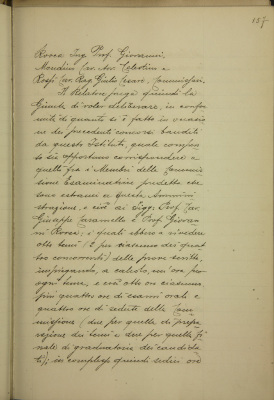 157
Rossa Ing. Prof. Giovanni,
Mondini Cav. Avv. Celestino e
Rossi Cav. Rag. Giulio Cesare, Commissari.
Il Relatore prega quindi la
Giunta di voler deliberare, in confor
mità di quanto si è fatto in occasio
ne dei precedenti concorsi banditi
da questo Istituto, quale compen
so sia opportuno corrispondere a
quelli fra i Membri della Commis
sione Esaminatrice predetta che
sono estranei a questa Ammini
strazione, e cioè ai Sigg. Prof. Cav.
Giuseppe Taramello e Prof. Giovan
ni Rossa, i quali ebbero a rivedere
otto temi (2 per ciascuno dei quat
tro concorrenti) delle prove scritte,
impiegando, a calcolo, un'ora per
ogni tema, e così otto ore ciascuno,
più quattro ore di esami orali e
quattro ore di sedute della Com
missione (due per quella di prepa
razione dei temi e due per quella fi
nale di graduatoria dei candida
ti); in complesso quindi sedici ore